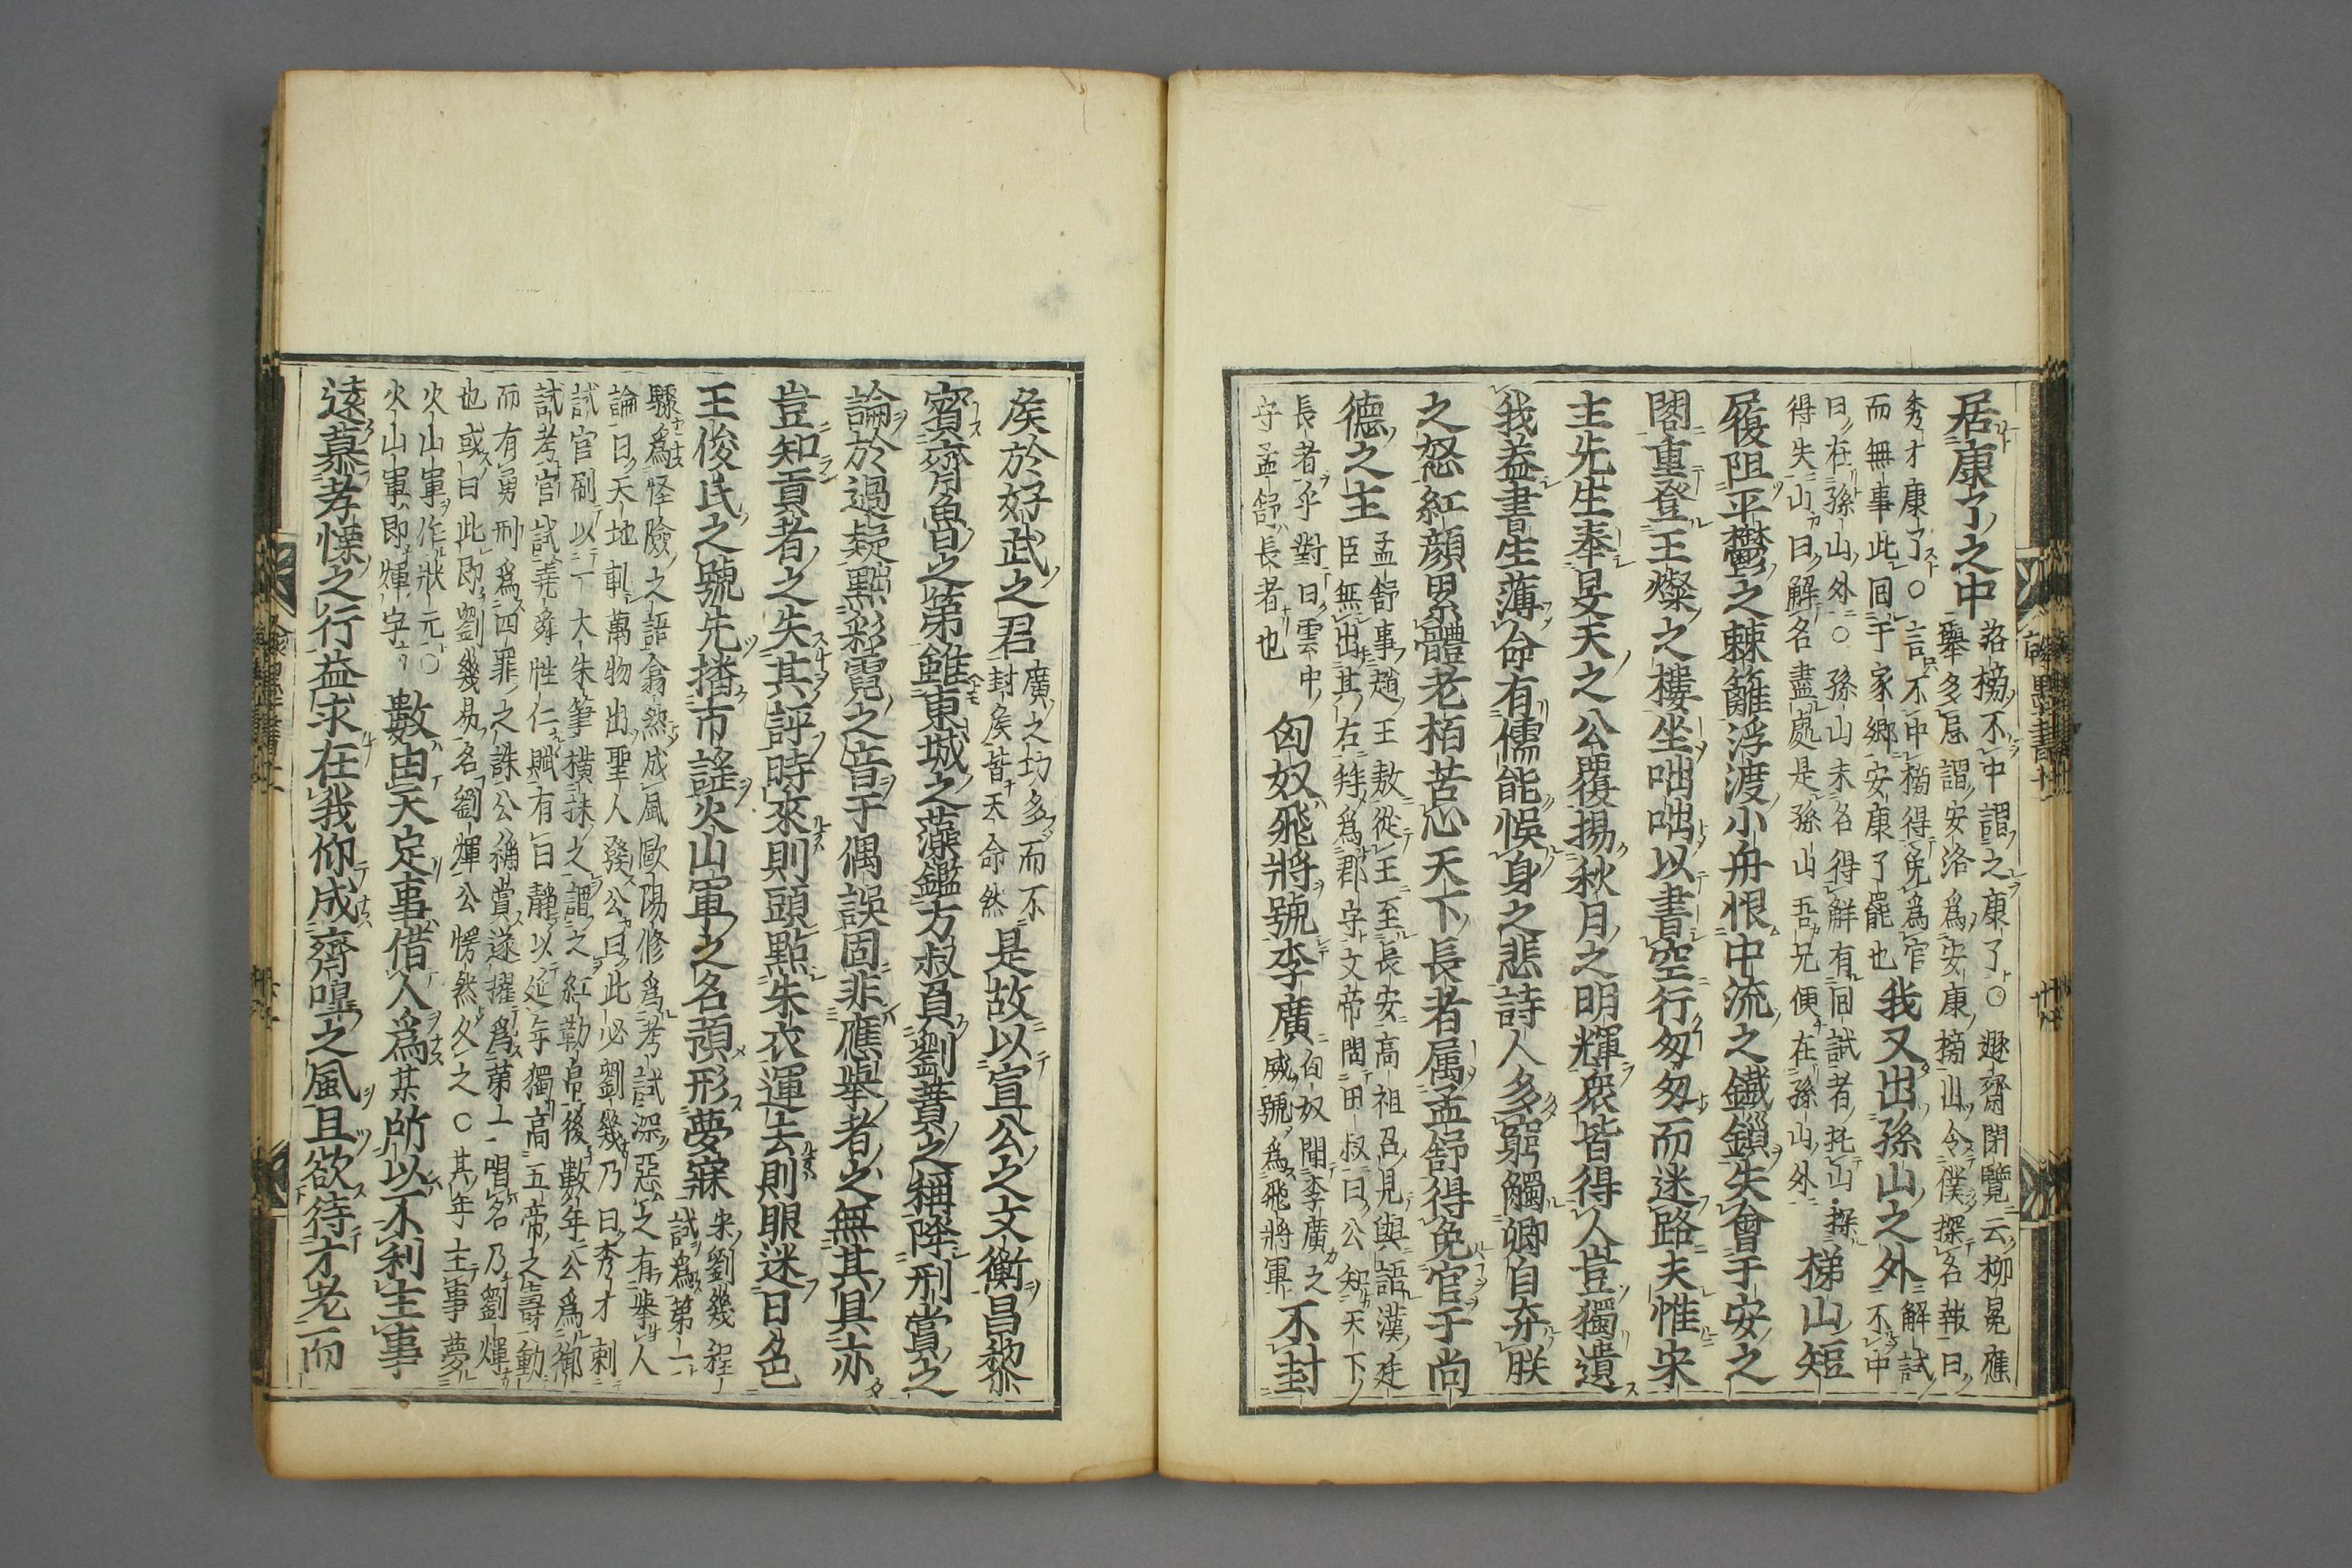 居康了之中 落榜不中謂之康了○遯齋閒覽云柳冕應
舉多忌謂安洛爲安康榜出令僕探名報曰
秀才康了○言不中榜得免爲官
而無事此回于家鄉安康了罷也 我又出孫山之外 解試
不中
曰在孫山外○孫山末名得解有同試者托山探
得失山曰解名盡處是孫山吾兄便在孫山外 梯山短
履阻平鬱之棘籬浮渡小舟恨中流之鐵鎖失會于安之
閣重登王燦之樓坐咄咄以書空行匆匆而迷路夫惟宋
主先生奉旻天之公覆揚秋月之明輝衆皆得人豈獨遺
我盖書生薄命有儒能悞身之悲詩人多窮觸卿自弃朕
之怒紅顔累體老栢苦心天下長者属孟舒得免官于尚
德之主 孟舒事趙王敖從王至長安高祖召見與語漢廷
臣無出其右拜爲郡守文帝問田叔曰公知天下
長者乎對曰雲中
守孟舒長者也 匈奴飛將號李廣 匈奴聞李廣之
威號爲飛將軍 不封
矦於好武之君 廣之功多而不
封矦皆天命然 是故以宣公之文衡昌黎
賓齊魯之第雖東城之藻鑑方叔負劉蕡之稱降刑賞之
論於過疑黠彩霓之音于偶誤固非應舉者之無其具亦
豈知貢者之失其評時來則頭點朱衣運去則眼迷日色
王俊民之號先播市謡火山軍之名預形夢寐 宋劉幾程
試爲第一
驟爲怪險之語翕然成風歐陽修爲考試深惡之有舉人
論曰天地軋萬物出聖人發公曰此必劉幾乃曰秀才刺
試官刷以一大朱筆橫抹之謂之紅勒帛後數年公爲御
試考官試堯舜性仁賦有曰靜以延年獨高五帝之壽動
而有勇刑爲四罪之誅公稱賞遂擢爲第一唱名乃劉煇
也或曰此即劉幾易名劉煇公愕然久之○其年主事夢
火山軍作狀元○
火山軍即煇字 數由天定事借人爲某所以不利主事
遠慕孝慄之行益求在我仰成齊嘷之風且欲待才老而